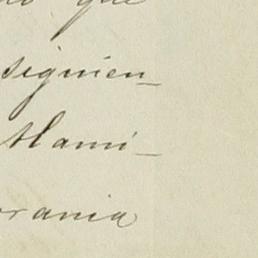 que
siguien_
tlami_
orania